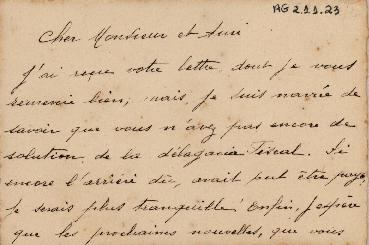 AG 2.11.23
Cher Monsieur et Ami
J'ai reçue votre lettre dont je vous
remercie bien; mais, je suis navrée de
savoir que vous n'avez pas encore de
solution, de la délagacia Fiscal. Si
encore l'arriéré dû, avait put être payé,
je serais plus tranqüille! Enfin, j'espère
que les prochaines nouvelles, que vous